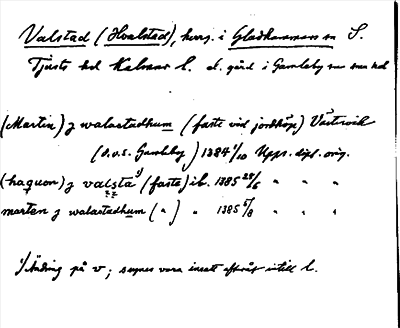 Valstad (Hvalstad), herg. i Gladhammars sn S.
Tjusts hd Kalmar l. el. gård i Gamleby sn sma hd
(Martin) j walastadhum (faste vid jordköp) Västervik
(S.v.S. Gamleby) 1384 1/10 Upps. dipl. orig.
(haquon) j valsta 1) (faste) ib. 1385 24/6 " " "
marten j walastadhum ( " ) " 1385 5/8 " " "
1) Ändring på v; synes vara insatt efteråt intill l.